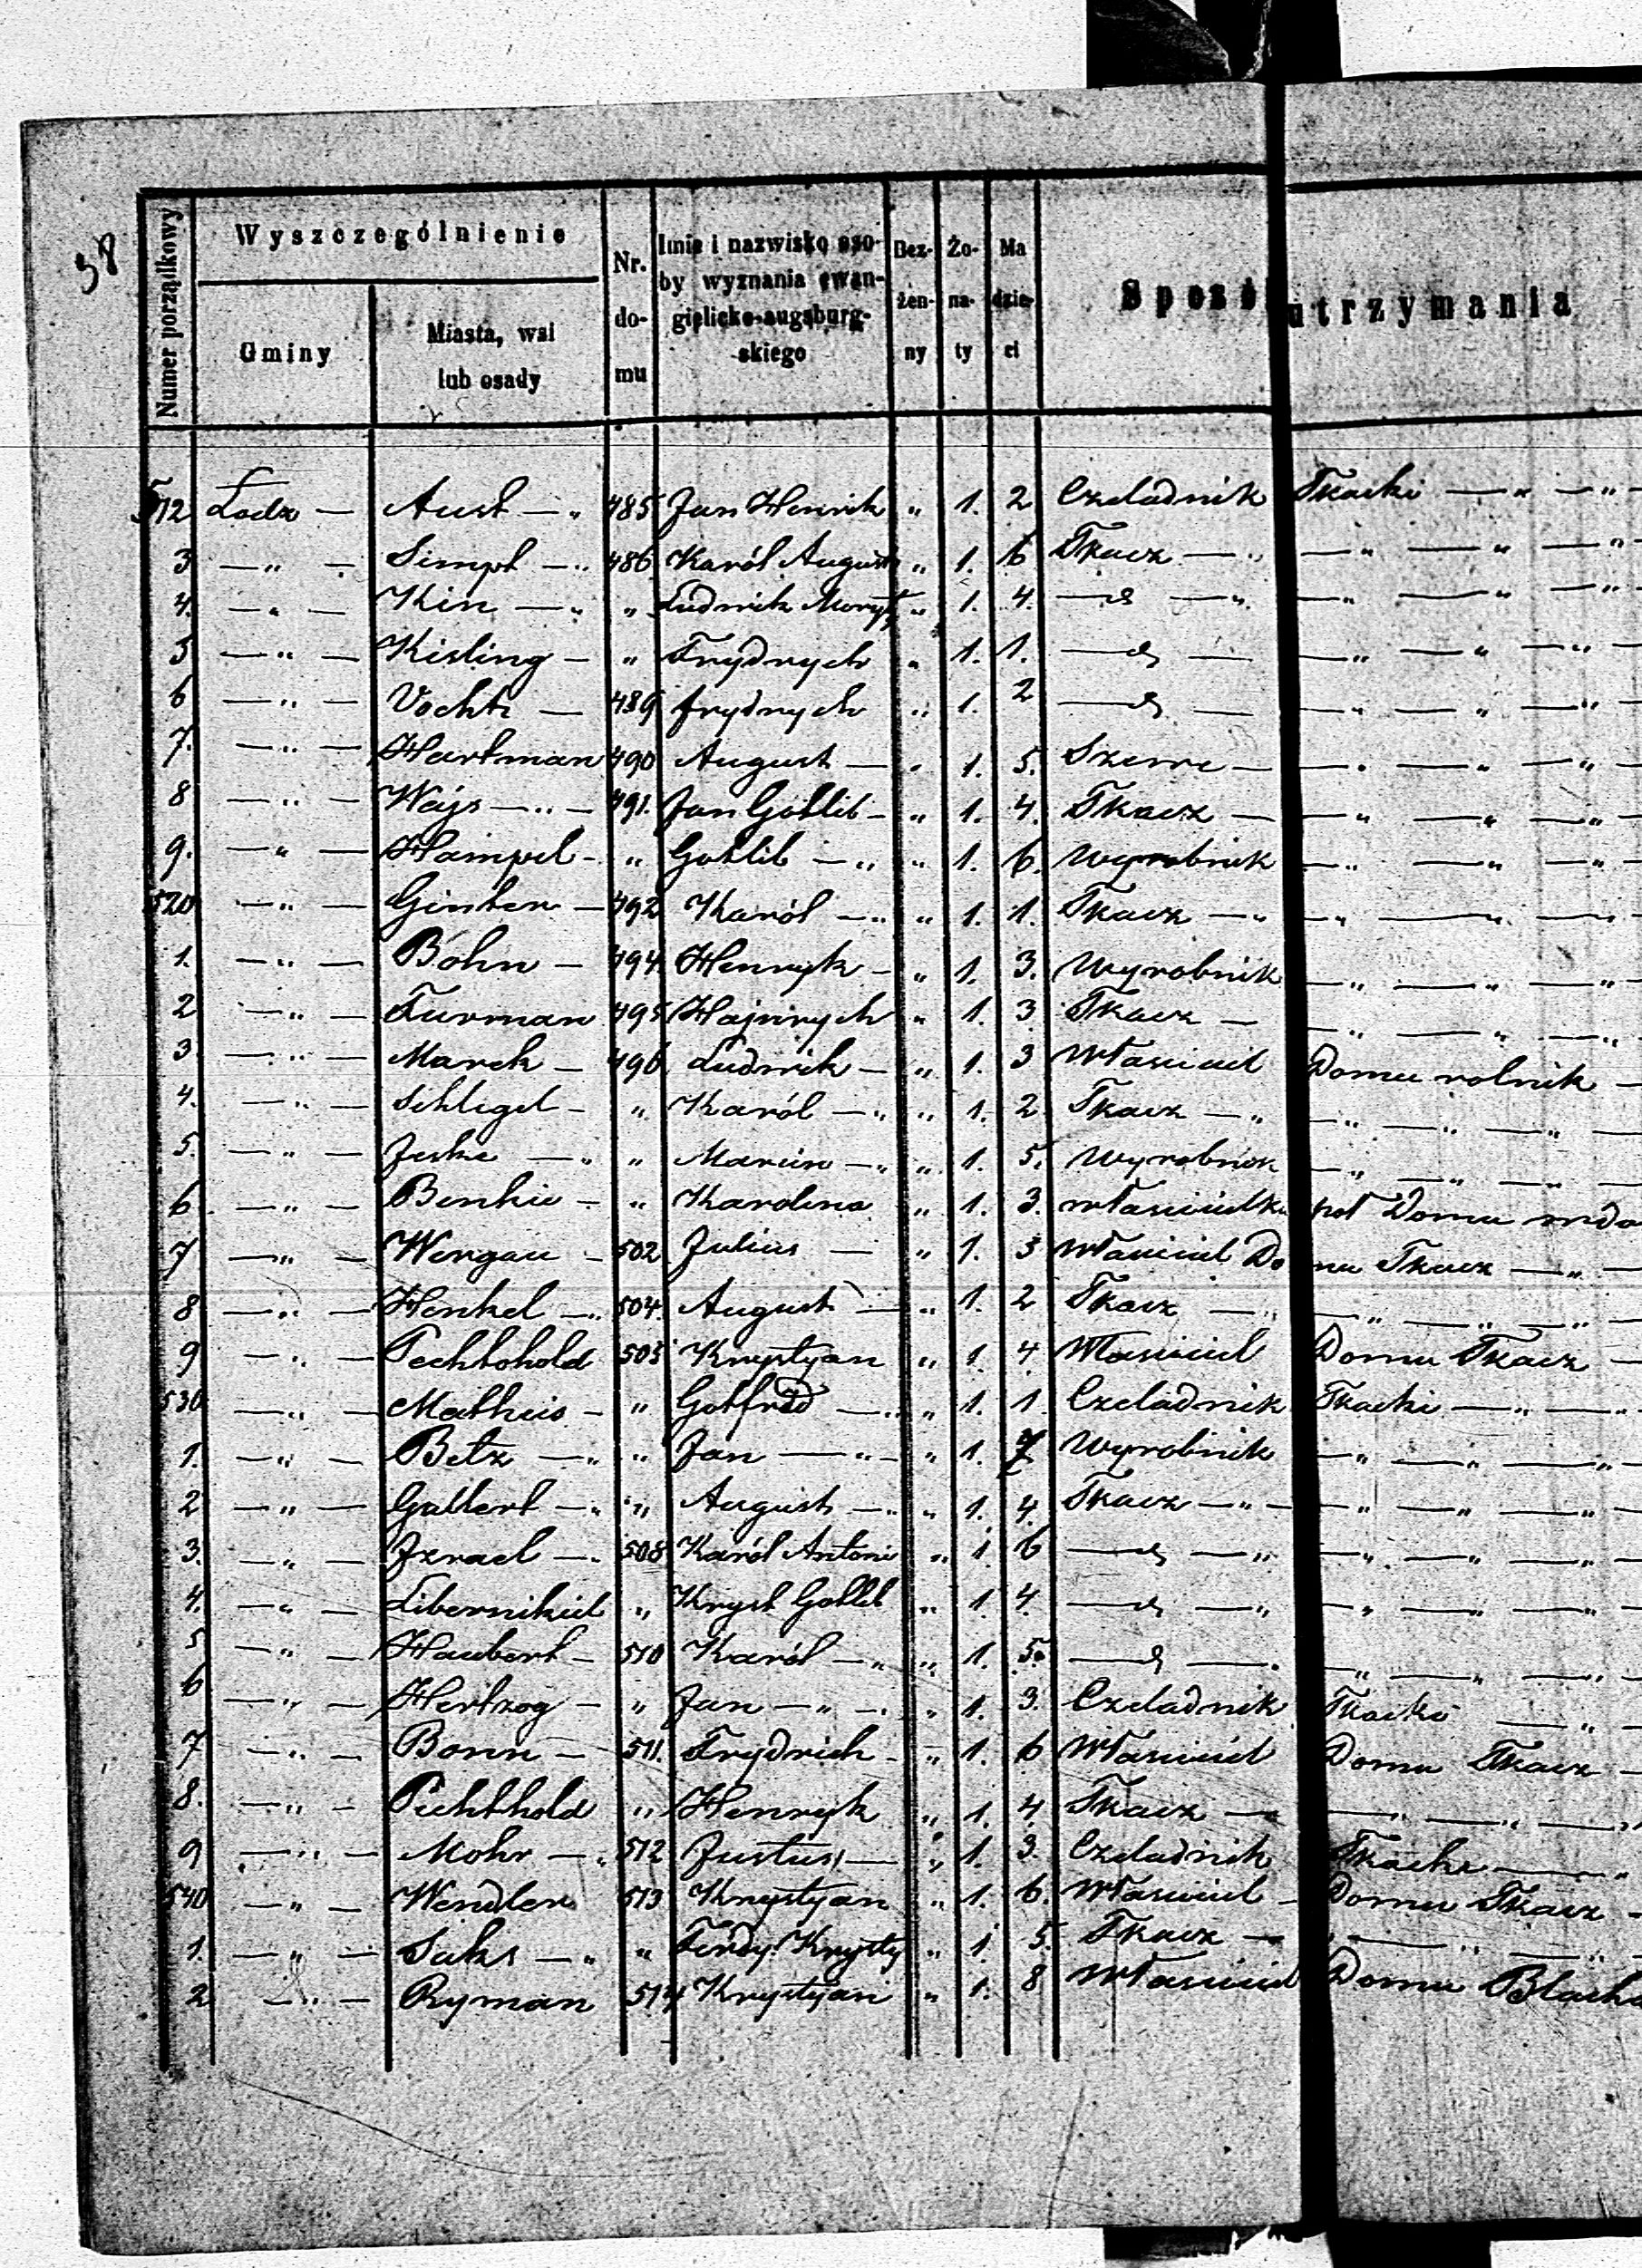 38
Numer porządkowy
Wyszczególnienie
Gminy
Miasta, wsi lub osady
Nr. do- mu
Imie i nazwisko oso- by wyznania ewan- gielicko-augsburg- skiego
Bez- żen- ny
Żo- na- ty
Ma dzie- ci
Sposó utrzymania
512 Łodz — Aust — „ 485 Jan Henrik „ 1. 2 Czeladnik Tkacki — „ — „ —
3 — „ — Simpt — „ 486. Karól August „ 1. 6 Tkacz — „ — „ — „ — „ —
4. — „ — Kin — „ „ Ludwik Moryt „ 1. 4. — d — „ — „ — „ — „ —
5 — „ — Kisling — „ Frydrych „ 1. 1. — d — — „ — „ — „ —
6 — „ — Vocht — 489 frydrych „ 1. 2 — d — — „ — „ — „ —
7. — „ — Hartman 490 August — „ 1. 5. — „ — „ — „ —
8 — „ — Wajs — „ — 491. Jan Gottlib — „ 1. 4. Tkacz — — „ — „ — „ —
9. — „ — Hampel — „ Gotlib — „ „ 1. 6. Wyrobnik — „ — „ — „ —
520 — „ — Ginter — 492 Karól — „ „ 1. 1. Tkacz — „ — „ — „ — „ —
1. — „ — Böhn — 494. Henryk — „ 1. 3. Wyrobnik — „ — „ — „ —
2 — „ — Furman 495 Hajnrych „ 1. 3 Tkacz — — „ — „ — „
3. — „ — Marek — 496 Ludwik — „ 1. 3 Własciciel Domu rolnik —
4. — „ — Schlegel — „ Karól — „ „ 1. 2 Tkacz — „ — „ — „ — „ —
5. — „ — Jeske — „ „ Marcin — „ „ 1. 5. Wyrobnik — „ — „ — „ —
6. — „ — Benkie — „ Karolina „ 1. 3. własciciélka poł Domu wdo
7 — „ — Wergau — 502 Julius — „ 1. 3 Własciciel Domu Tkacz — „ —
8 — „ — Henkel — „ 504. August — „ 1. 2 Tkacz — „ — „ — „ — „ —
9 — „ — Pechthold 505 Krystyan „ 1. 4 Własciciel Domu Tkacz —
530 — „ — Matheis — „ Gotfrid — „ „ 1. 1 Czeladnik Tkacki — „ — „
1. — „ — Betz — „ „ Jan — „ — „ 1. 7 Wyrobnik — „ — „ — „ —
2 — „ — Galtert — „ „ August — „ „ 1. 4. Tkacz — „ — — „ — „ — „ —
3. — „ — Izrael — „ 508 Karól Antoni „ 1. 6 — d — „ — „ — „ — „ —
4. — „ — Libernikiel „ Kryst Gotlib „ 1. 4. — d — „ — „ — „ — „ —
5 — „ — Haubert — 510 Karól — „ „ 1. 5. — d — . — „ — „ — „ —
6 — „ — Hertzog — „ Jan — „ — „ 1. 3. Czeladnik Tkacki — „ —
7 — „ — Bonn — 511. Frydrich — „ 1. 6 Własciciel Domu Tkacz —
8. — „ — Pechthold „ Henryk „ 1. 4. Tkacz — — „ — „ — „
9 — „ — Mohr — „ 512 Justus — „ 1. 3. Czeladnik Tkacki — „
540 — „ — Wendler 513 Krystyan „ 1. 6. Własciciel — Domu Tkacz —
1. — „ — Saks — „ „ Ferdy. Krysty „ 1 5. Tkacz — — „ — „ —
2 — „ — Ryman 514 Krystyan „ 1. 8 Własciciel Domu Blacha